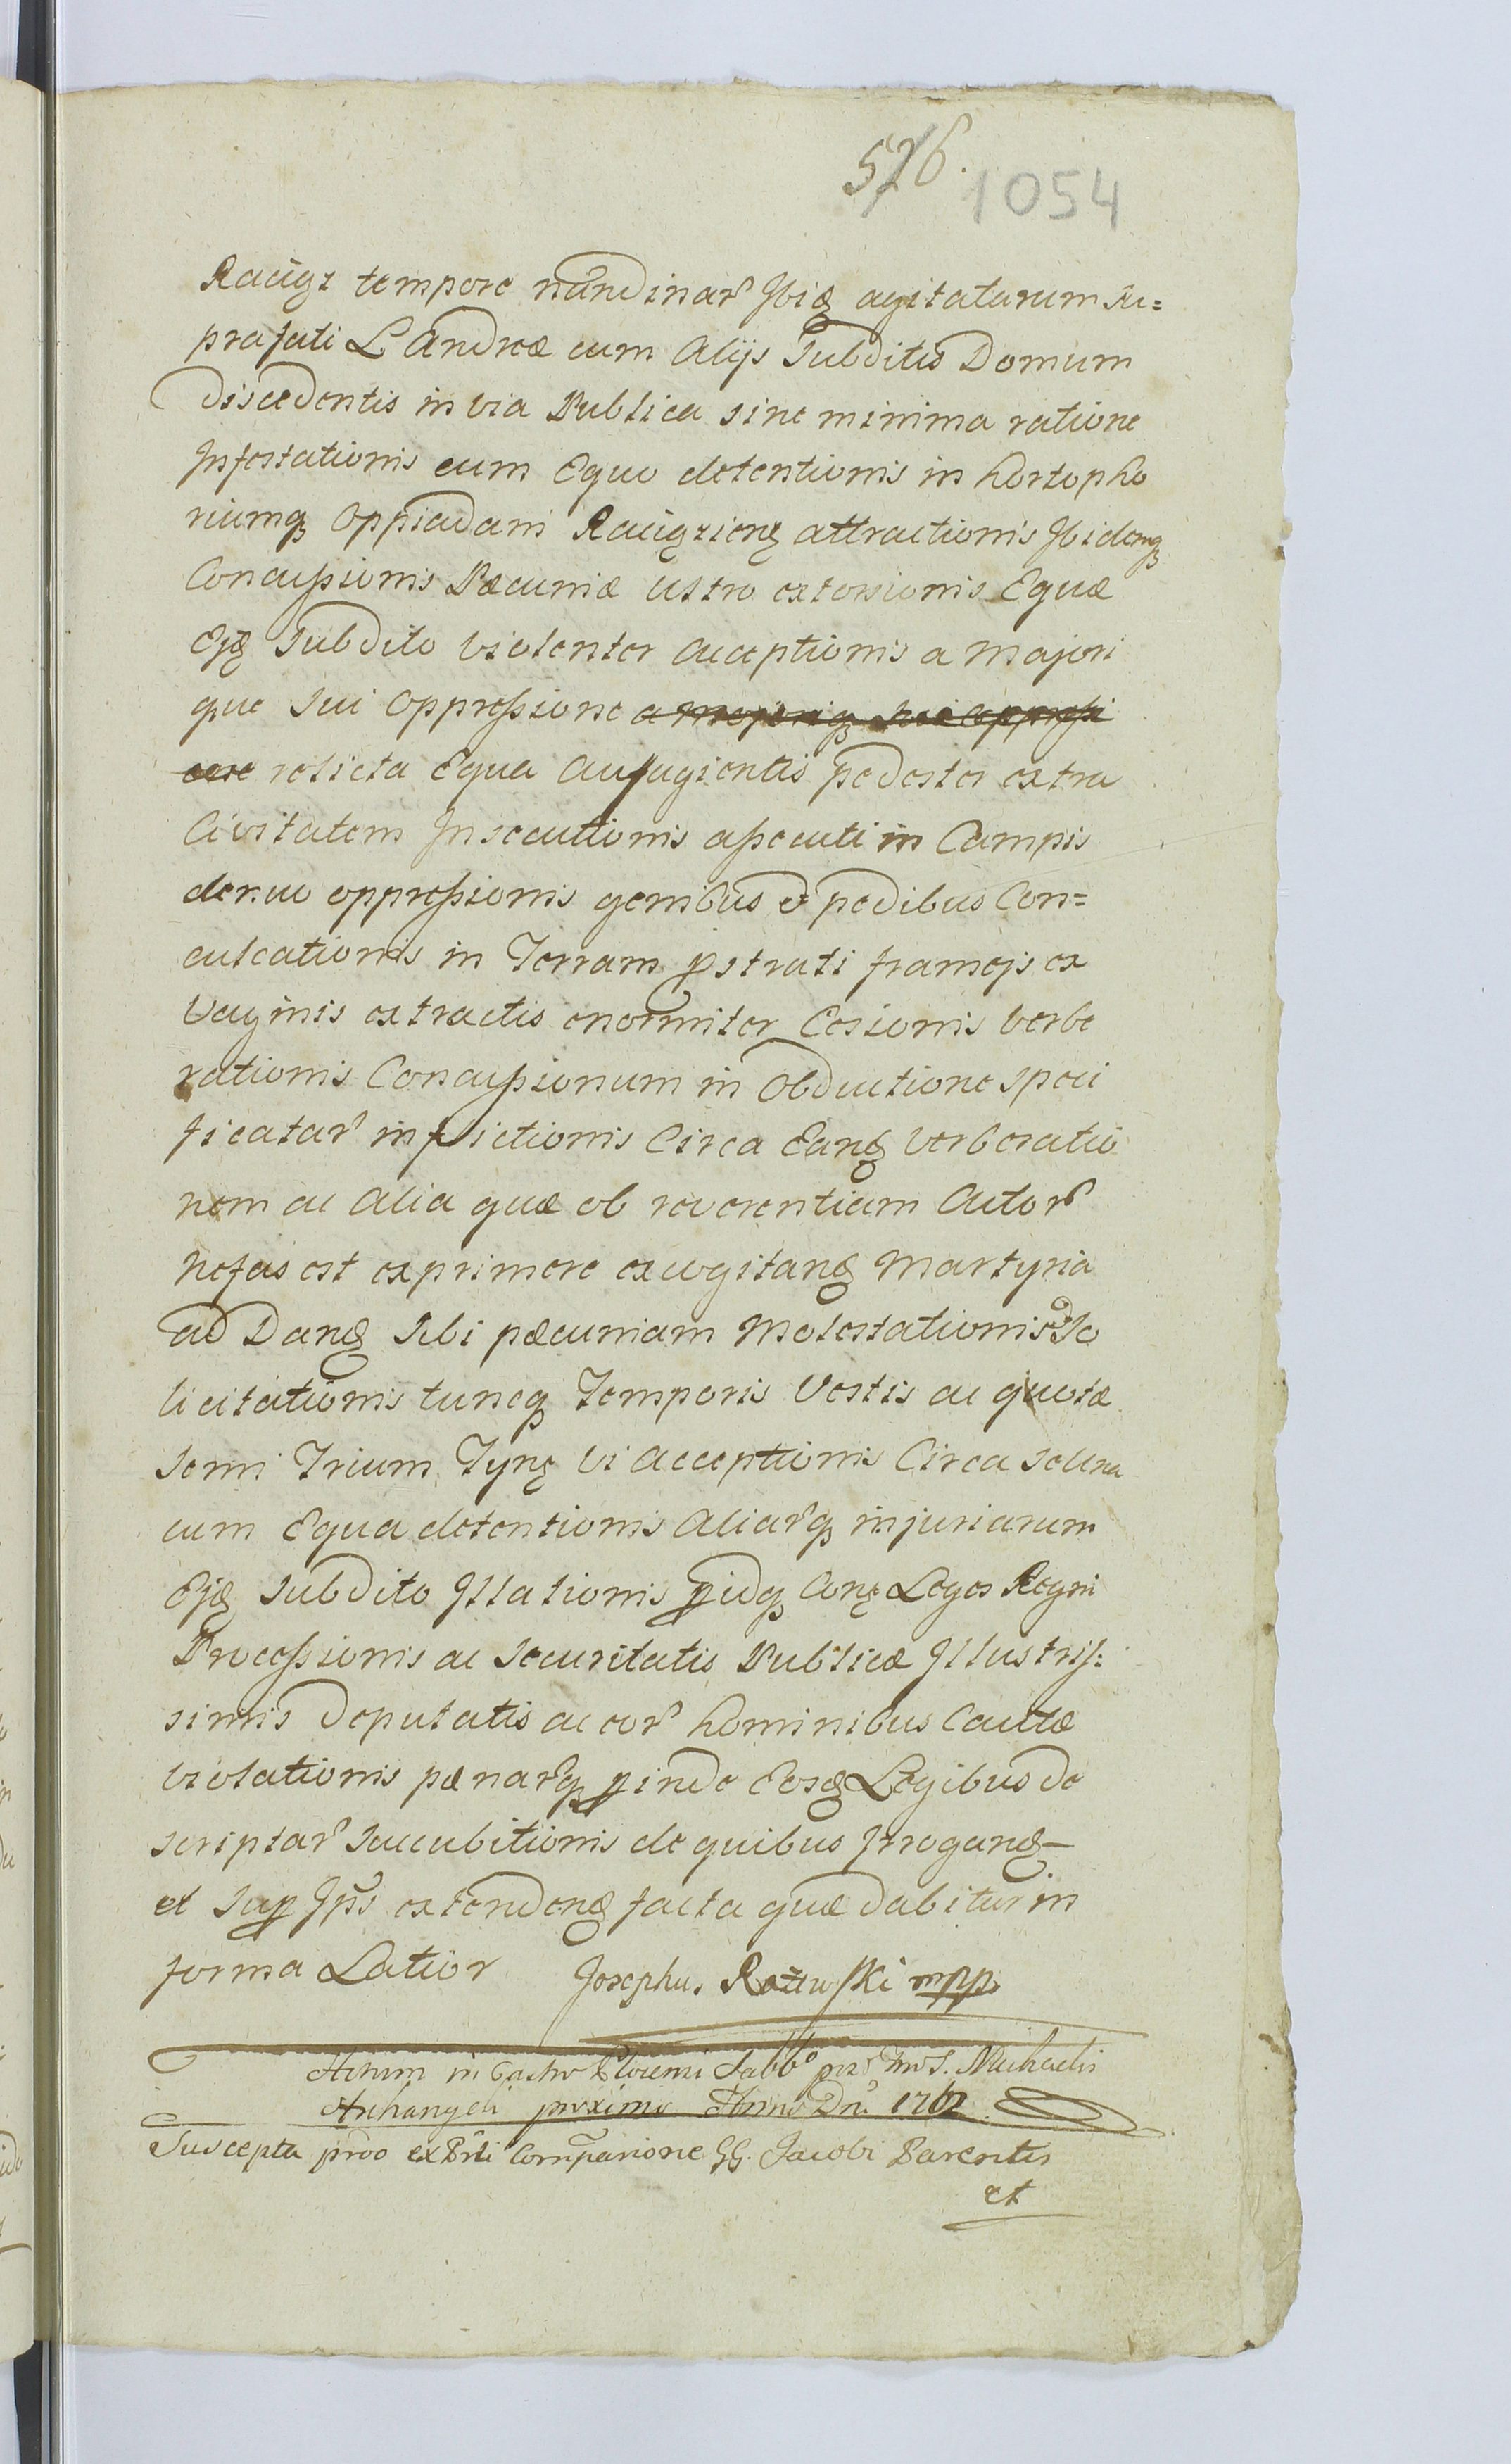 576.
1054
Raciąz tempore nundinar Ibiq agitatarum su=
prafati L Andreæ cum Alijs Subditis Domum
discedentis in via Publica sine minima ratione
Infestationis cum Equo detentionis in hortopho
riumq Oppiadani Raciązienq attractionis Ibidemq
Concussionis Pæcuniæ ultro extorsionis Equæ
Ejq Subdito violenter acceptionis a Majori
que sui Oppressione a majoriq sui oppressi
one relicta Equa aufugientis pedester extra
Civitatem Insecutionis assecuti in Campis
denuo oppressionis genibus & pedibus Con=
culcationis in Terram pstrati framejs ex
Vaginis extractis enormiter Cesionis verbe
rationis Concussionum in Obductione speci
ficatar inflictionis Circa Eanq verberatio
nem ac alia quæ ob reverentiam Actor
nefas est exprimere excogitanq Martyria
ad Danq sibi pæcuniam Molestationis & So
licitationis tuncq Temporis Vestis ac quotæ
semi Trium Tynq vi acceptionis Circa se una
cum Equa detentionis Aliarq injuriarum
Ejq Subdito Illationis pidq Conq Leges Regni
Processionis ac Securitatis Publicæ Illustris=
simis Deputatis ac eor hominibus Cautæ
violationis pænarq pinde Eosq Legibus de
scriptar Succubitionis de quibus Irrogang
et sup Ipīs extendenq facta quæ dabitur in
forma Latior Josephus Rottwski mpp
Actum in Castro Plocensi Sabbo prx Fm S. Michaelis
Archangeli proximo Anno Dni 1762
Suscepta proo ex Prli Comparione GG. Jacobi Parentis
et